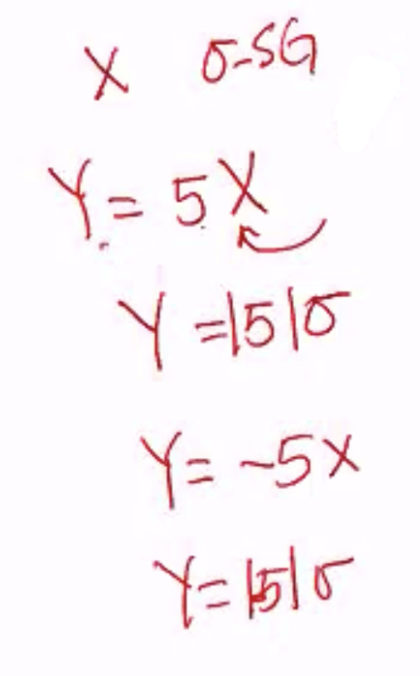 X σ-SG
Y = 5X
Y = |5|σ
Y = -5X
Y = |5|σ